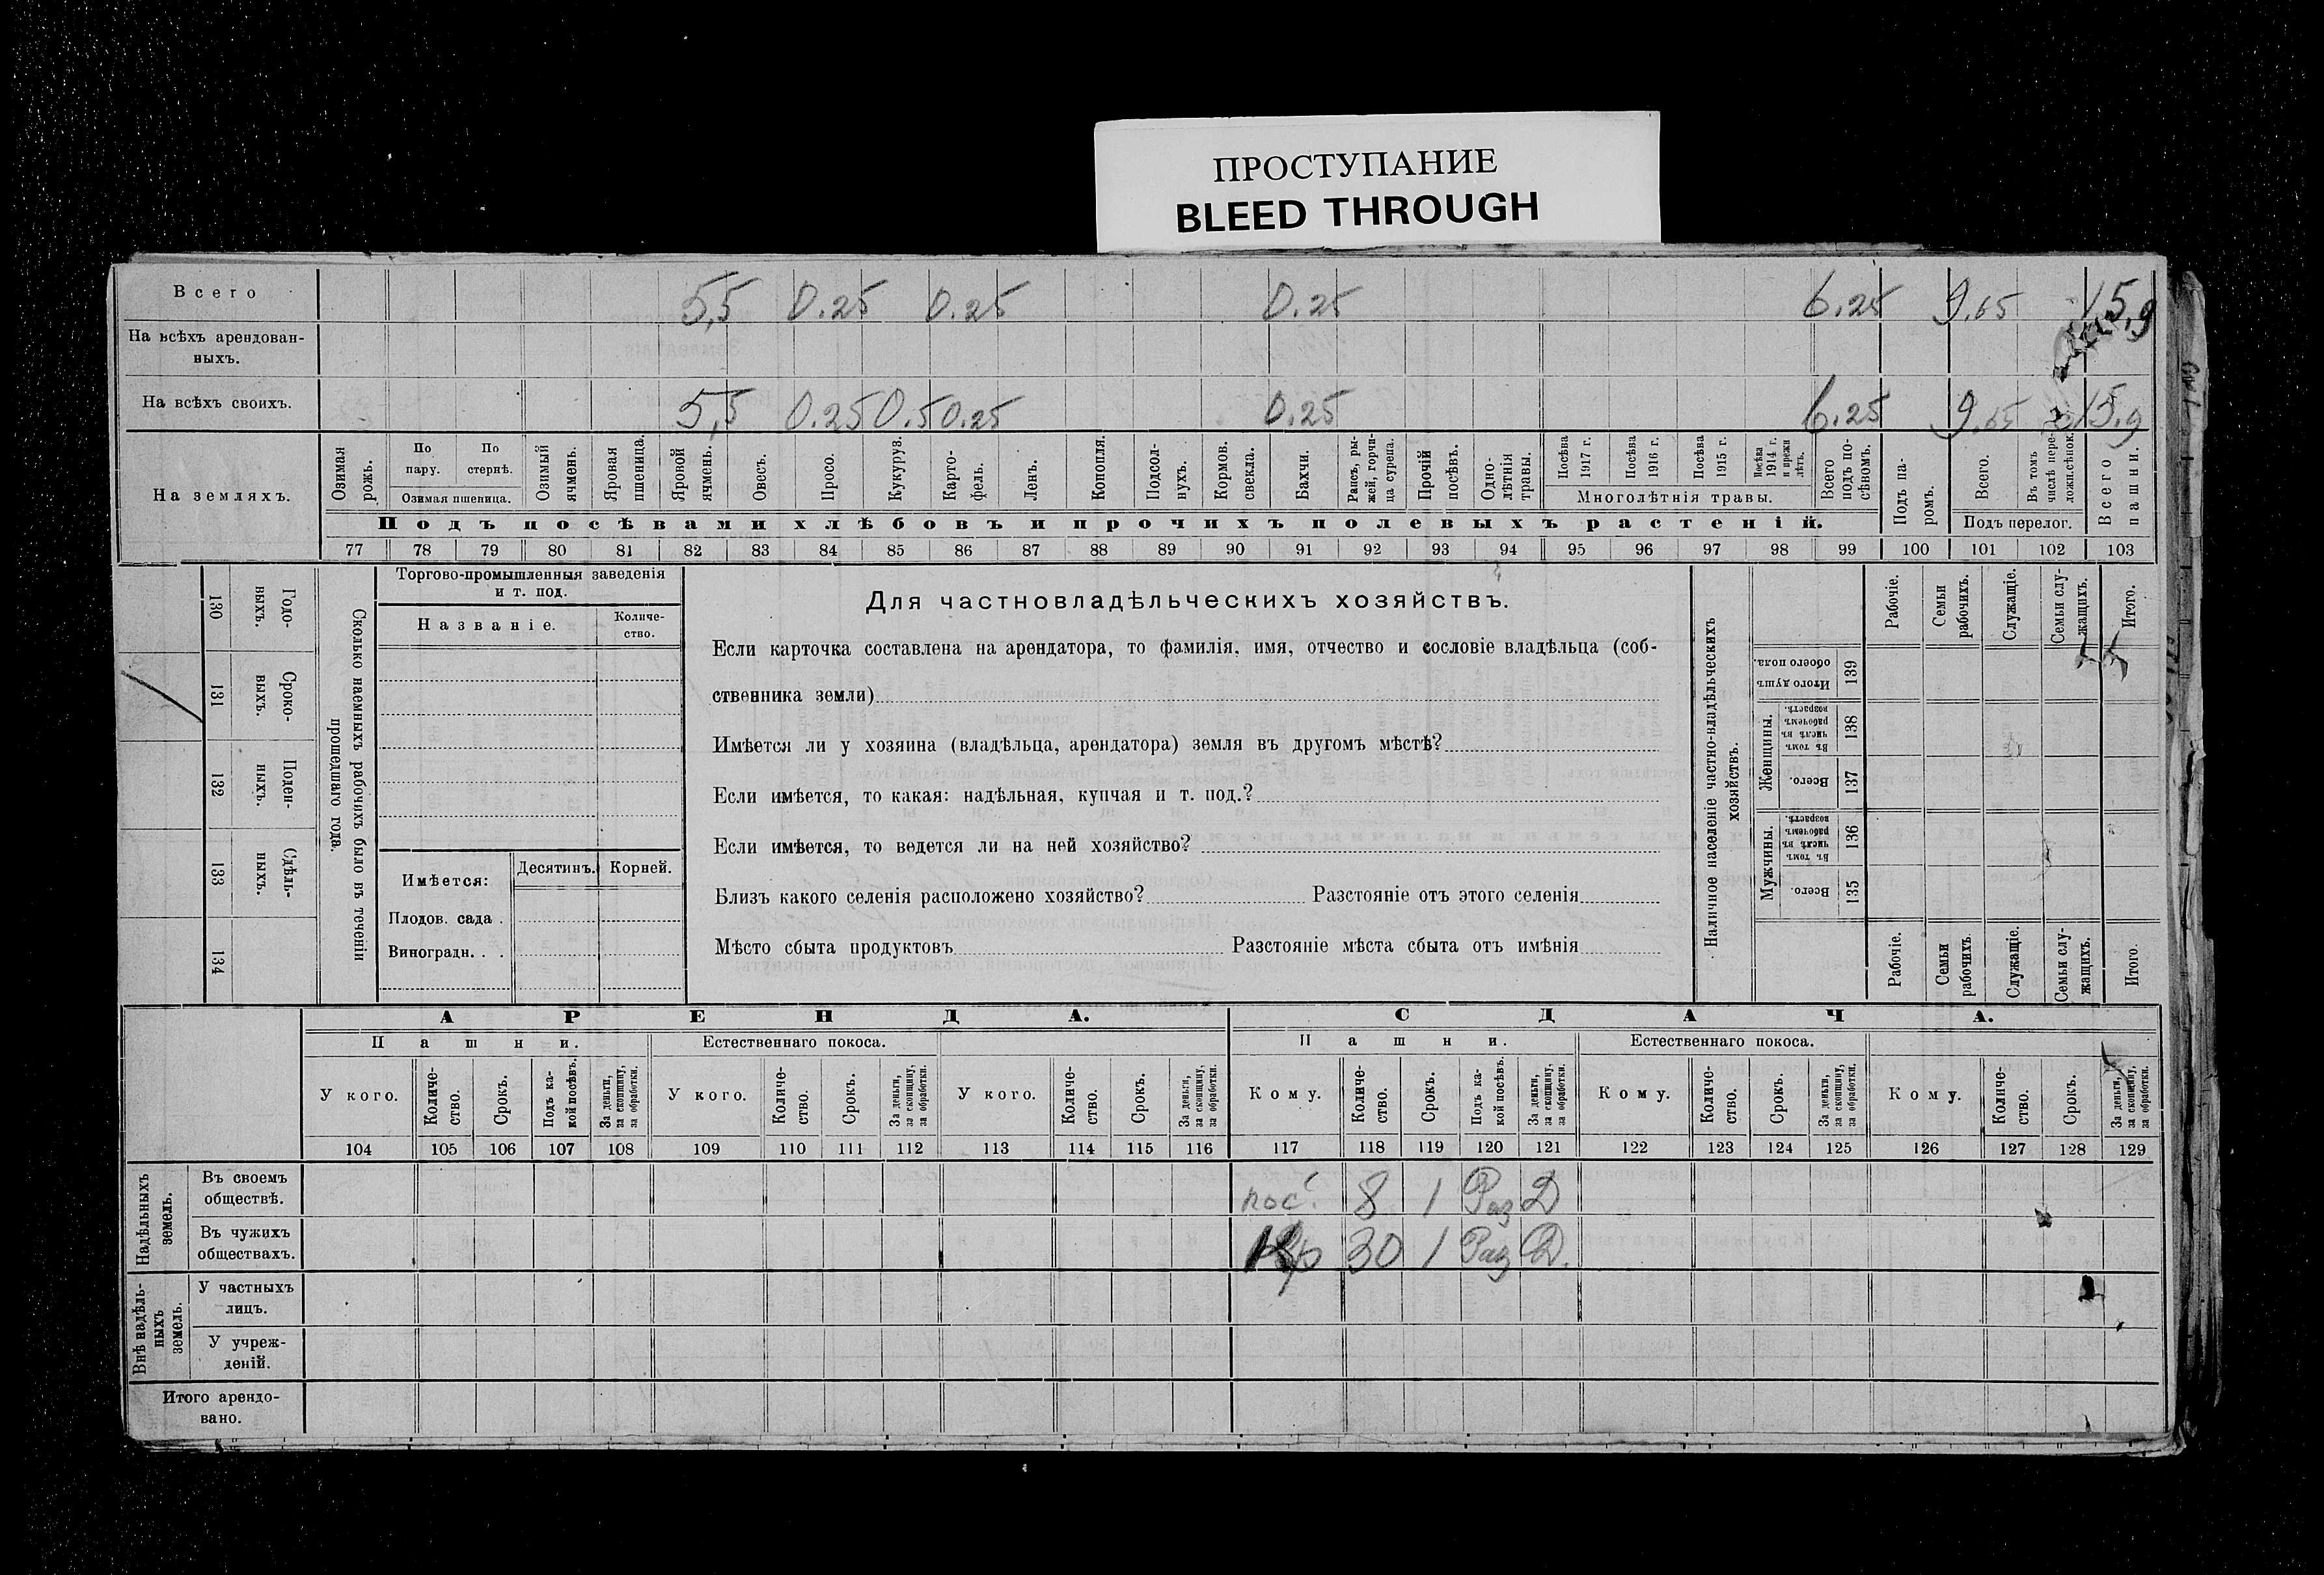 ПРОСТУПАНИЕ
BLEED THROUGH
Всего 5,5 0.25 0.25 0.25 6.25 9.65 15,9
На всѣхъ арендован-
ныхъ.
На всѣхъ своихъ. 5,5 0.25 0.5 0.25 0.25 6.25 9.65 15.9
На земляхъ.
Озимая рожь.
По пару.
По стернѣ.
Озимая пшеница.
Озимый ячмень.
Яровая пшеница.
Яровой ячмень.
Овесъ.
Просо.
Кукуруз.
Карто-
фель.
Ленъ.
Конопля.
Подсол-
нухъ.
Кормов. свекла.
Бахчи.
Рапсъ, ры-
жей, горчи-
ца сурепа.
Прочій посѣвъ.
Одно-
лѣтнія травы.
Посѣва 1917 г.
Посѣва 1916 г.
Посѣва 1915 г.
Посѣва 1914 г. и прежн лѣтъ.
Многолѣтнія травы.
Всего подъ по-
сѣвомъ.
Подъ па-
ромъ.
Всего.
Въ томъ числѣ пере-
ложн.сѣнок.
Подъ перелог.
Всего пашни.
Подъ посѣвами хлѣбовъ и прочихъ полевыхъ растеній.
77 78 79 80 81 82 83 84 85 86 87 88 89 90 91 92 93 94 95 96 97 98 99 100 101 102 103
130 Годо-
ныхъ.
131 Сроко-
выхъ.
132 Поден-
ныхъ.
133 Сдѣль-
ныхъ.
134
Сколько наемныхъ рабочихъ было въ теченіи
прошедшаго года.
Торгово-промышленныя заведенія
и т. под.
Названіе.
Количе-
ство.
Имѣется:
Десятинъ.
Корней.
Плодов. сада .
Виноградн. . .
Для частновладѣльческихъ хозяйствъ.
Если карточка составлена на арендатора, то фамилія, имя, отчество и сословіе владѣльца (соб-
ственника земли)
Имѣется ли у хозяина (владѣльца, арендатора) земля въ другомъ мѣстѣ?
Если имѣется, то какая: надѣльная, купчая и т. под.?
Если имѣется, то ведется ли на ней хозяйство?
Близъ какого селенія расположено хозяйство? Разстояніе отъ этого селенія
Мѣсто сбыта продуктовъ Разстояніе мѣста сбыта отъ имѣнія
Наличное населеніе частно-владѣльческихъ
хозяйствъ.
Рабочіе.
Семьи рабочихъ.
Служащіе.
Семьи слу-
жащихъ.
Итого.
Итого душъ обоего пола. 139
Женщины.
Въ томъ числѣ въ рабочемъ возрастѣ. 138
Всего. 137
Мужчины.
Въ томъ числѣ въ рабочемъ возрастѣ. 136
Всего. 135
Рабочіе.
Семьи рабочихъ
Служащіе.
Семьи слу-
жащихъ.
Итого
АРЕНДА.
СДАЧА.
Пашни.
Естественнаго покоса.
Пашни.
Естественнаго покоса.
У кого.
Количе-
ство.
Срокъ.
Подъ ка-
кой посѣвъ.
За деньги,
за скопщину,
за обработки.
У кого.
Количе-
ство.
Срокъ.
За деньги,
за скопщину,
за обработки.
У кого.
Количе-
ство.
Срокъ.
За деньги,
за скопщину,
за обработки.
Кому.
Количе-
ство.
Срокъ.
Подъ ка-
кой посѣвъ.
За деньги,
за скопщину,
за обработки.
Кому.
Количе-
ство.
Срокъ.
За деньги,
за скопщину,
за обработки.
Кому.
Количе-
ство.
Срокъ.
За деньги,
за скопщину,
за обработки.
104 105 106 107 108 109 110 111 112 113 114 115 116 117 118 119 120 121 122 123 124 125 126 127 128 129
Надѣльныхъ
земель.
Въ своемъ
обществѣ.
пос. 8 1 Раз Д
Въ чужихъ
обществахъ.
Кр 30 1 Раз Д.
Внѣ надѣль-
ныхъ
земель.
У частныхъ
лицъ.
У учреж-
деній.
Итого арендо-
вано.